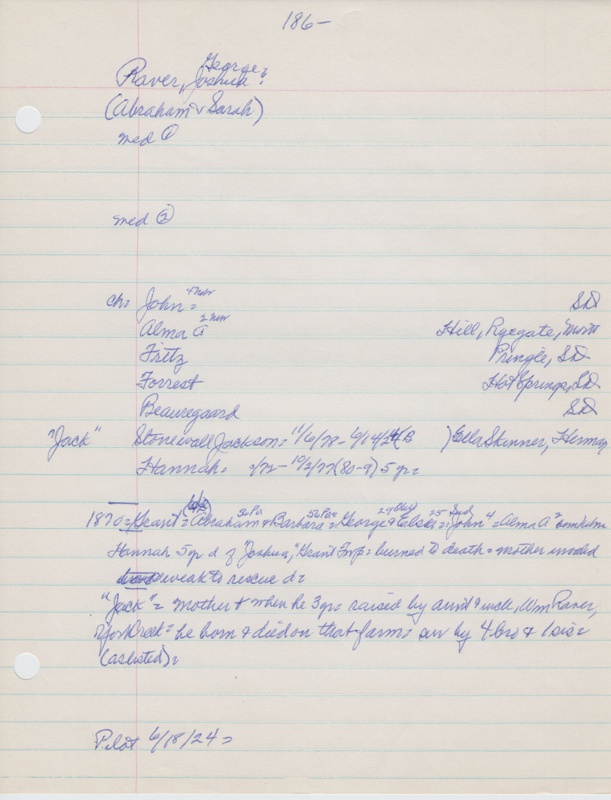 186-
George?
Raver, Joshua?
(Abraham & Sarah)
med ①
med ②
ch= John= 4 mar SD
Alma A 2 mar Hill, Ryegate, Mont
Fritz Pringle, SD
Forrest Hot Springs, SD
Beauregard SD
"Jack" Stonewall Jackson= 11/6/78- 6/14/24(B )Ella Skinner, Herman
Hannah= /72-10/2/77(80-9) 5 yr=
1870=Grant= Abraham 56 Pa & Barbara 56 Pa= George 29 & Elsa 25= John 4 = Alma A 2
Hannah 5 yr d of "Joshua," Grant Twp= burned to death= mother invalid
weak to rescue d=
"Jack"= mother & when he 3 yrs raised by aunt & uncle, Wm Raver,
he born & died on that farm= sur by 4 bro & 1 sis=
(as listed)=
Pilot 6/18/24=